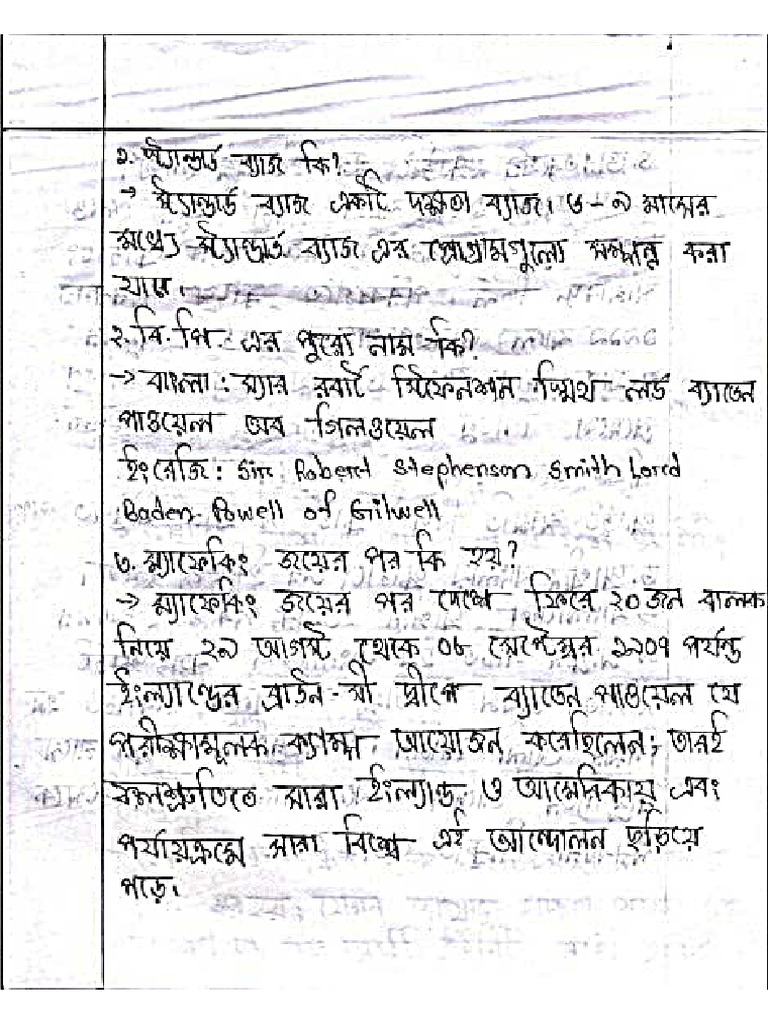 ১. স্ট্যান্ডার্ড ব্যাজ কি?
→ স্ট্যান্ডার্ড ব্যাজ একটি দক্ষতা ব্যাজ। ৩-৯ মাসের
মধ্যে স্ট্যান্ডার্ড ব্যাজ এর প্রোগ্রামগুলো সম্পন্ন করা
যায়।
২. বি. পি. এর পুরো নাম কি?
→ বাংলা: স্যার রবার্ট স্টিফেনশন স্মিথ লর্ড ব্যাডেন
পাওয়েল অব গিলওয়েল
ইংরেজি: Sir Robert Stephenson Smith Lord
Baden-Powell of Gilwell
৩. ম্যাফেকিং জয়ের পর কি হয়?
→ ম্যাফেকিং জয়ের পর দেশে ফিরে ২০জন বালক
নিয়ে ২৯ আগস্ট থেকে ০৮ সেপ্টেম্বর ১৯০৭ পর্যন্ত
ইংল্যান্ডের ব্রাউন-সী দ্বীপে ব্যাডেন পাওয়েল যে
পরীক্ষামূলক ক্যাম্প আয়োজন করেছিলেন; তারই
ফলশ্রুতিতে সারা ইংল্যান্ড ও আমেরিকায় এবং
পর্যায়ক্রমে সারা বিশ্বে এই আন্দোলন ছড়িয়ে
পড়ে।